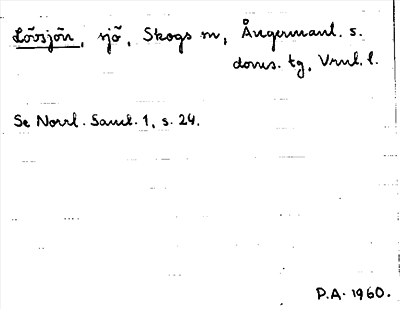 Lövsjön, sjö, Skogs m, Ångermanl. s.
doms. tg, Vrnl. l.
Se Norrl. Saml. 1, s. 24.
P.A. 1960.